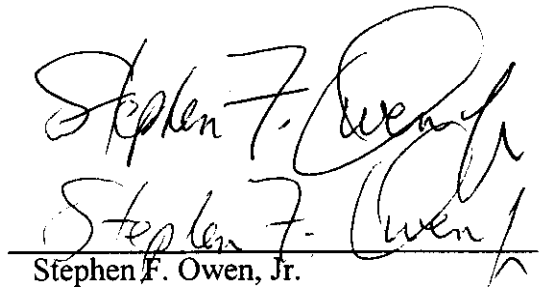 Stephen F. Owen, Jr.
Stephen F. Owen, Jr.
Stephen F. Owen, Jr.